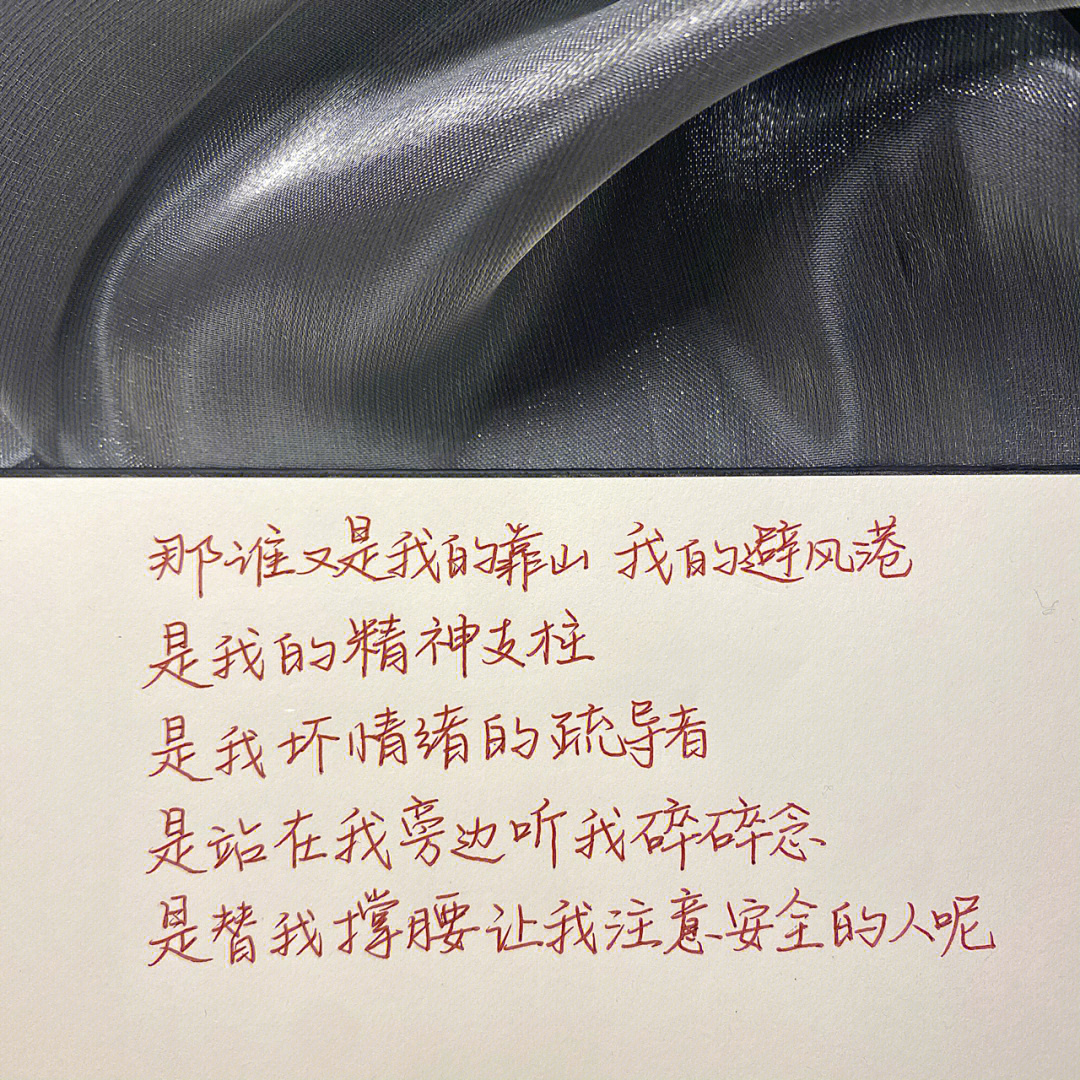 那谁又是我的靠山 我的避风港
是我的精神支柱
是我坏情绪的疏导者
是站在我旁边听我碎碎念
是替我撑腰让我注意安全的人呢